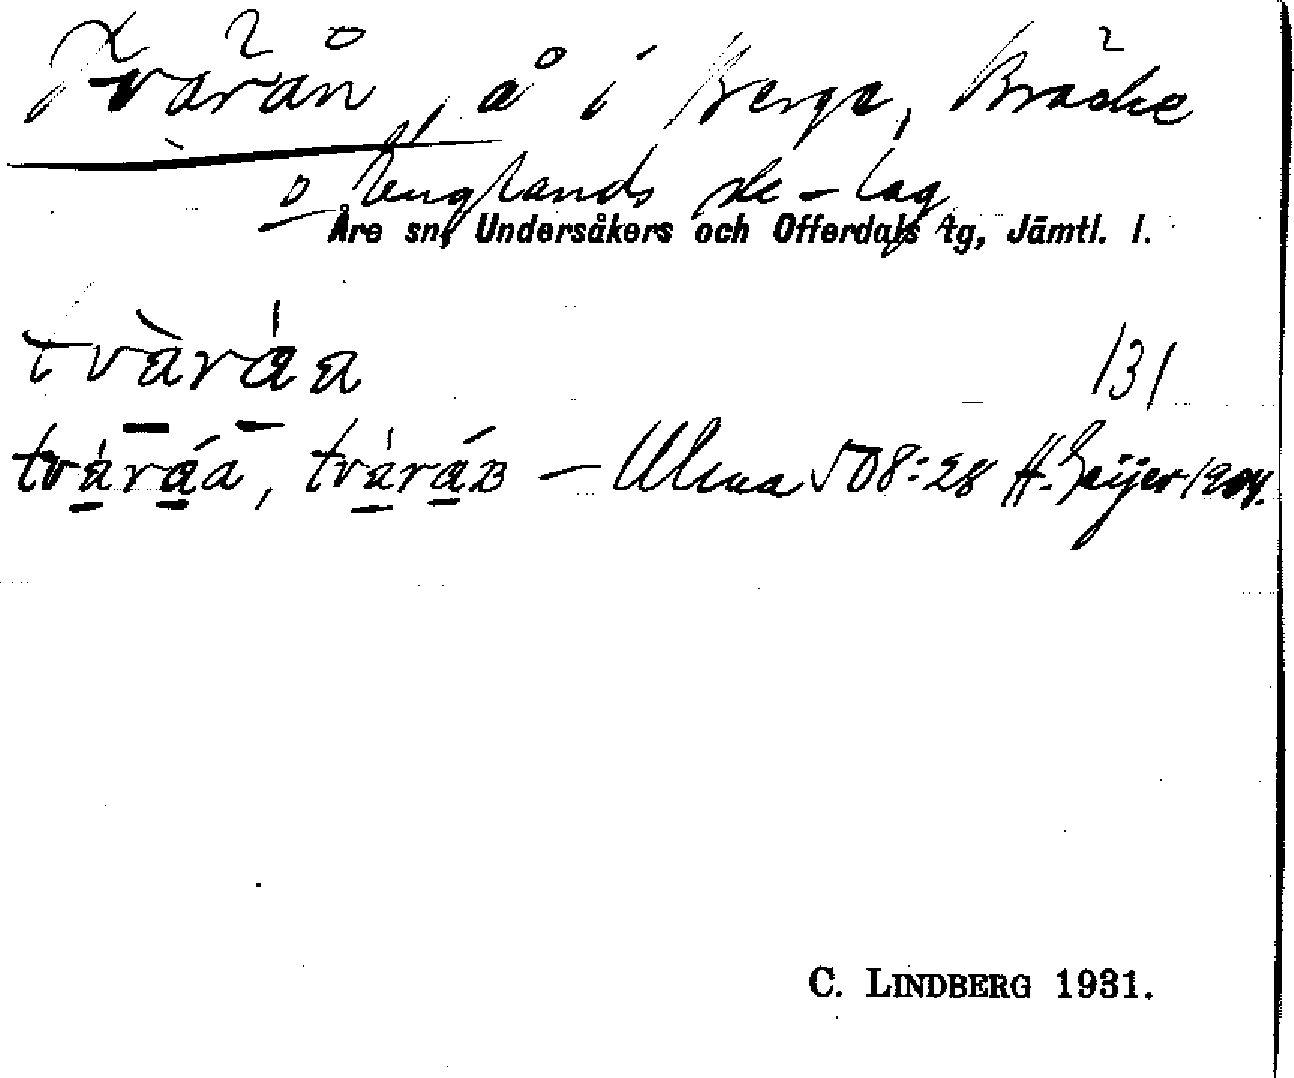 Tvärån, å i Berge, Bräcke
o Englands sk-lag
Åre sn, Undersåkers och Offerdals tg, Jämtl. l.
tvàráa
131
tvàráa, tvàráʙ – Ulma 508:28 H. Geijer 1904.
C. LINDBERG 1931.